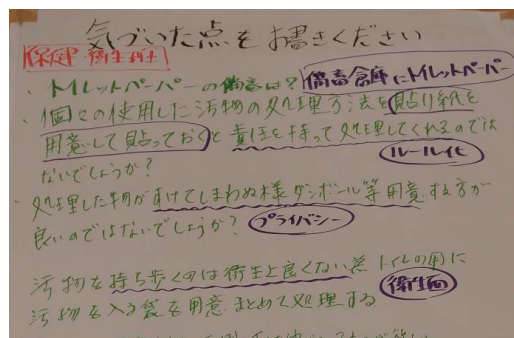 気づいた点をお書きください
保健・衛生班
・トイレットペーパーの備意は? 備蓄倉庫にトイレットペーパー
・個々の使用した汚物の処理方法を貼り紙を
用意して貼っておくと責任を持って処理してくれるのでは
ないでしょうか?
ルール化
・処理した物がすけてしまわぬ様ダンボール等用意する方が
良いのではないでしょうか? プライバシー
汚物を持ち歩くのは衛生上良くない為トイレの用に
衛生面
汚物を入る袋を用意まとめて処理する